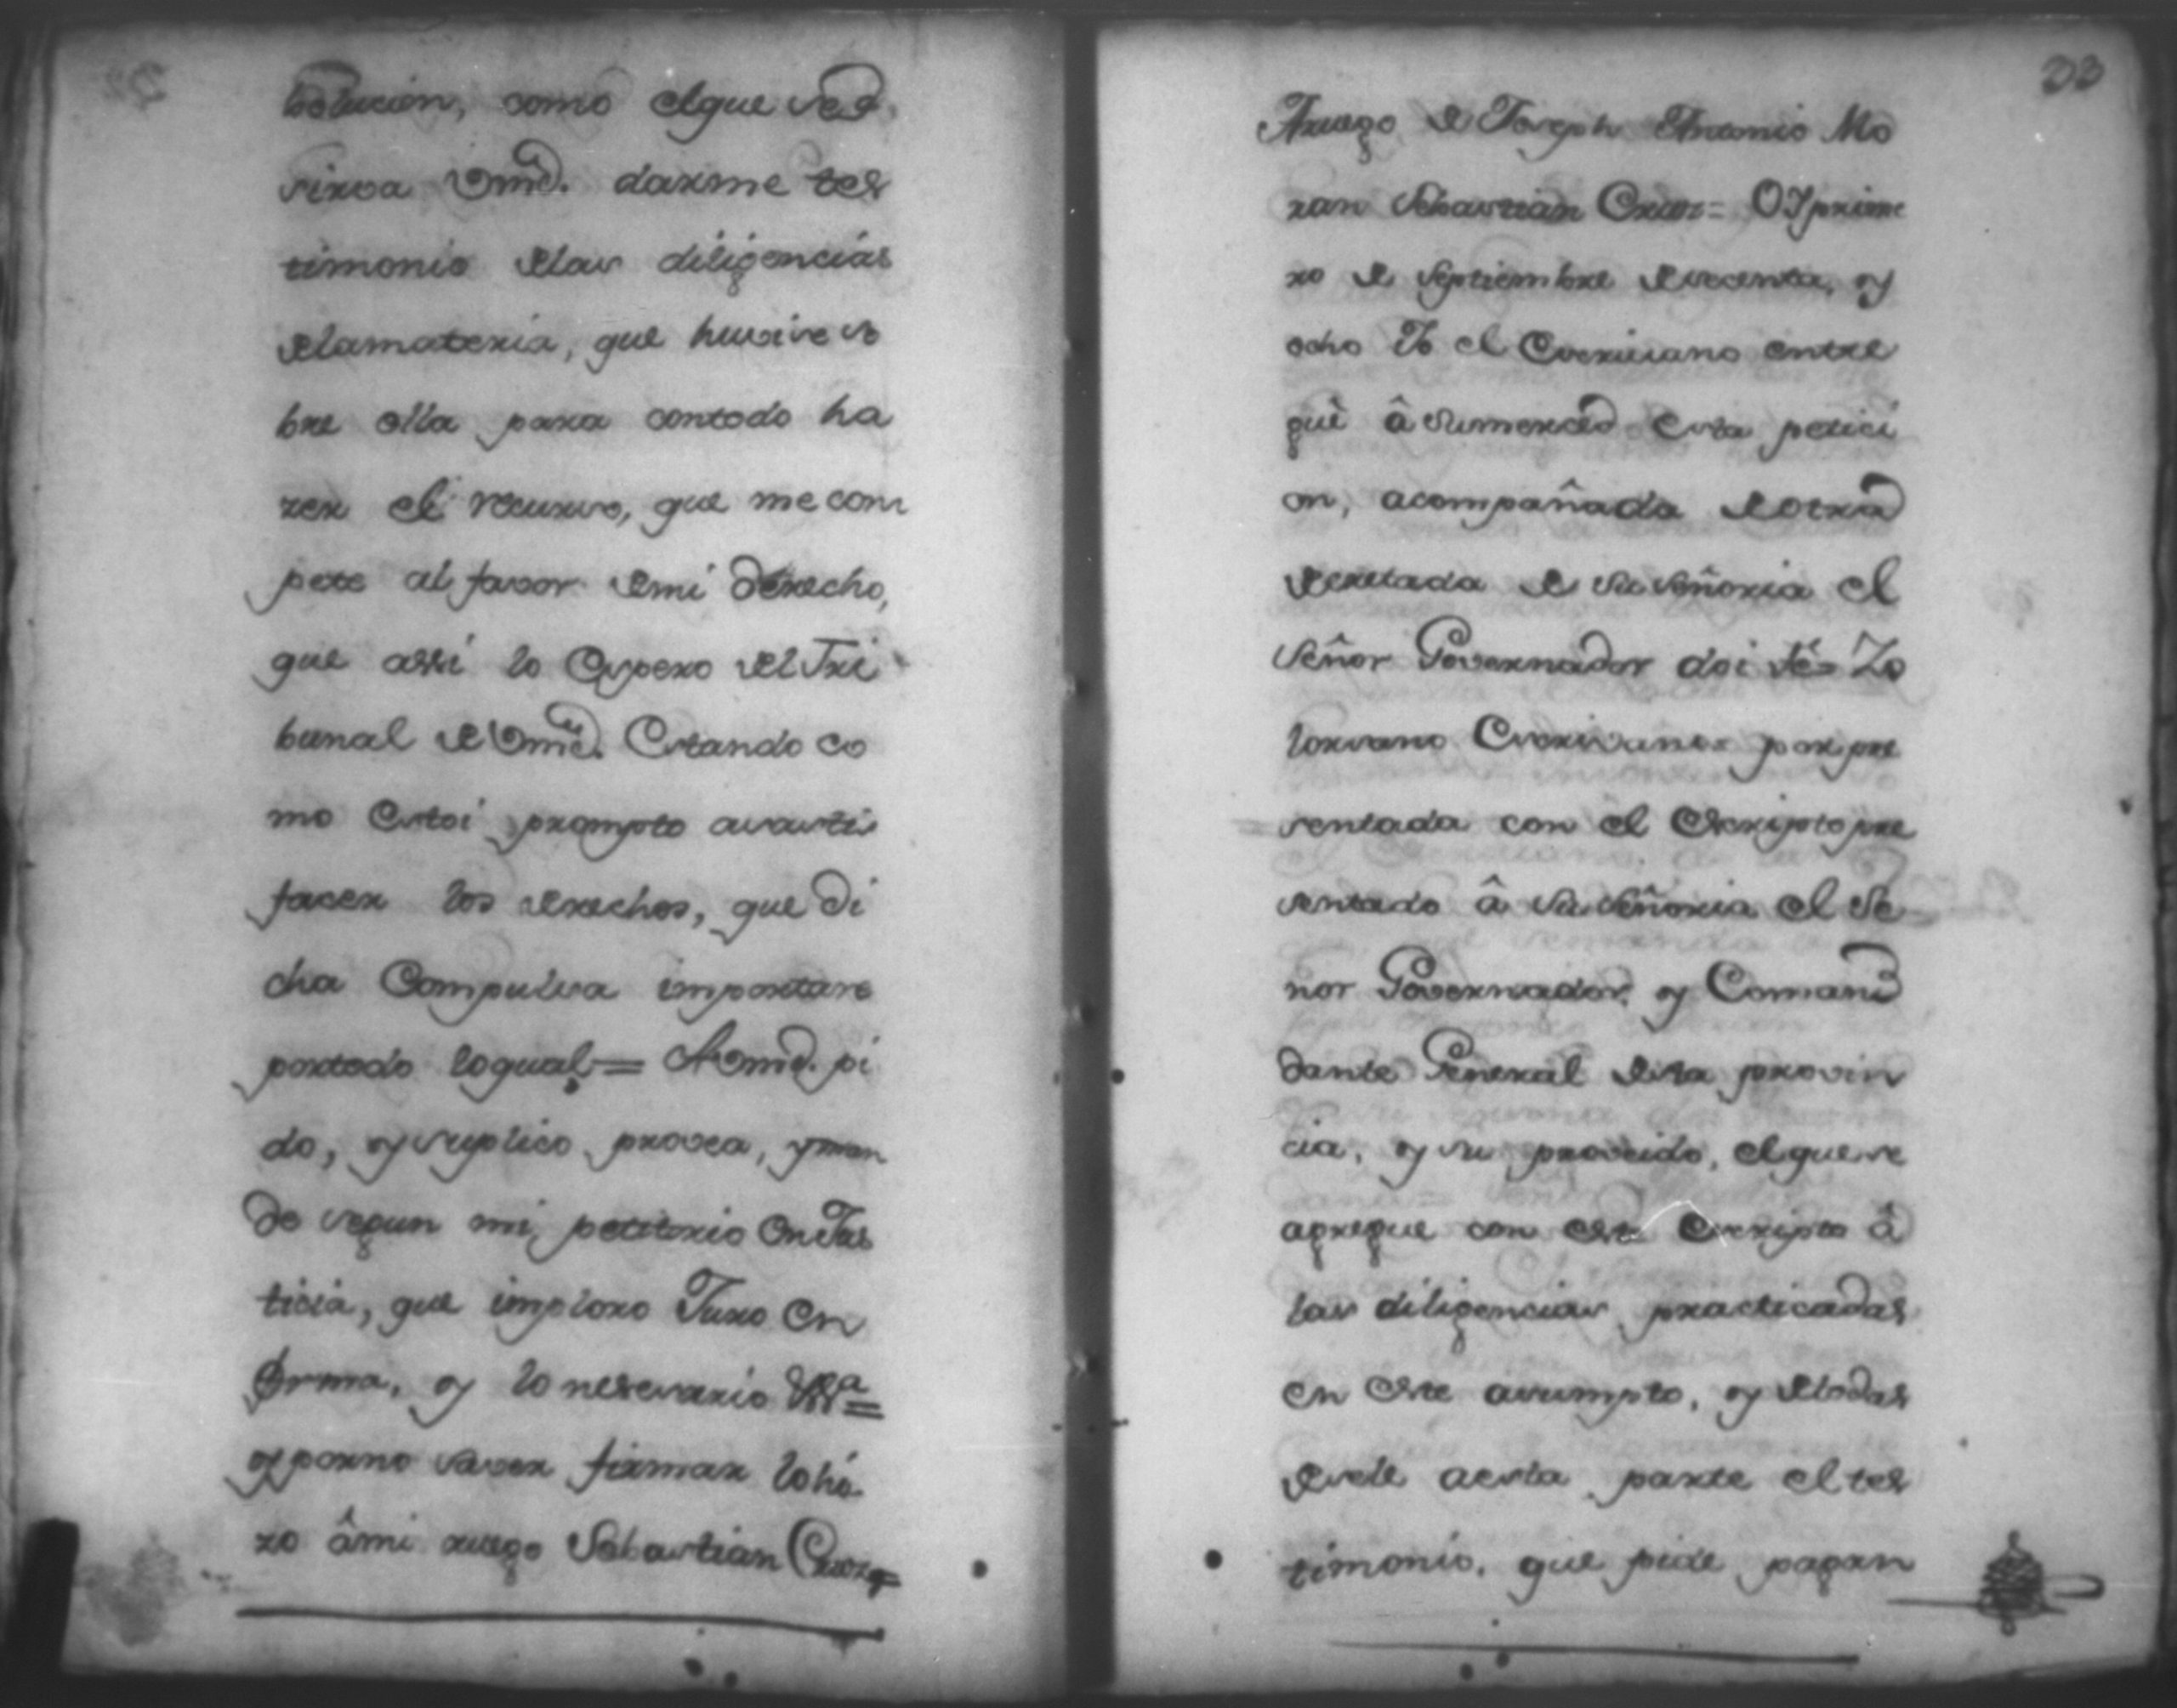 solucion, como elque se ā
sirva Vmd. darme tes
timonio delas diligencias
delamateria, que huviere so
bre ella para contodo ha
zer el recurso, que me com
pete al favor demi derecho,
que assi lo Espero del Tri
bunal de Vmd. Estando co
mo Estoi prompto asatis
facer los derechos, que di
cha Compulsa importare
portodo loqual= A Vmd. pi
do, y suplico provea, y man
de segun mi petitorio En Jus
ticia, que imploro Juro En
forma, y lo nesesario Vssª=
y porno saver firmar lo hi
zo âmi ruego Sebastian Cruz=
23
Aruego de Joseph Antonio Mo
ran Sebastian Cruz= Oy prime
ro de Septiembre desesenta, y
ocho Yo el Escrivano entre
guè â sumerced Esta petici
on, acompañada deotra
decretada de su señoria el
Señor Governador doi fé= Zo
lorzano Escrivano= por pre
sentada con el Escripto pre
sentado â su señoria el Se
ñor Governador, y Coman
dante General desta provin
cia, y su proveido, elquese
agregue con este Escripto â
las diligencias practicadas
en este asumpto, y detodas
desele aesta parte el tes
timonio, que pide pagan